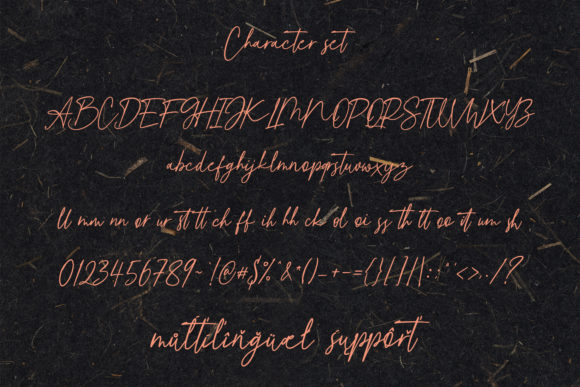 Character set
ABCDEFGHIJKLMNOPQRSTUVWXYZ
abcdefghijklmnopqrstuvwxyz
ll mm nn or ur st tt ch ff ih hh ck ol oi ss th tt oo it um sh
0123456789~`!@#$%^&*()_+-={}[]|\:;"'<>,./?